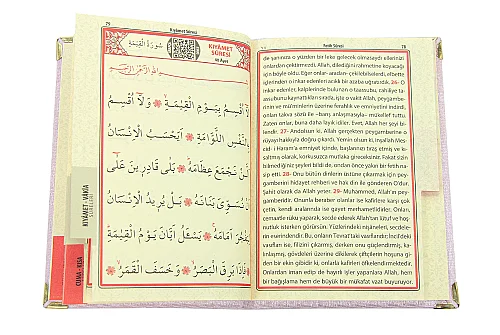 79
Kıyâmet Sûresi
سُورَةُ الْقِيٰمَةِ
KIYÂMET
SÛRESİ
40 Ayet
لَٓا اُقْسِمُ بِيَوْمِ الْقِيٰمَةِ وَلَٓا اُقْسِمُ
بِالنَّفْسِ اللَّوَّامَةِ اَيَحْسَبُ الْاِنْسَانُ
اَلَّنْ نَجْمَعَ عِظَامَهُ بَلٰى قَادِر۪ينَ عَلٰٓى
اَنْ نُسَوِّيَ بَنَانَهُ بَلْ يُر۪يدُ الْاِنْسَانُ
لِيَفْجُرَ اَمَامَهُ يَسْـَٔلُ اَيَّانَ يَوْمُ الْقِيٰمَةِ
فَاِذَا بَرِقَ الْبَصَرُ وَخَسَفَ الْقَمَرُ
KIYÂMET - VÂKIA
SÛRELERİ
CUMA - KISA
Fetih Sûresi
78
de yanınızda o yüzden bir leke gelecek olmasaydı ellerinizi
onlardan çektirmezdi. Allah, dilediğini rahmetine koyacağı
için böyle oldu. Eğer onlar-aradan-çekilebilselerdi, elbette
içlerinden o inkar edenleri acıklı bir azaba uğratırdık. 26- O
inkar edenler, kalplerinde bulunan o taassubu, rahiliye ta-
assubunu kaynattıkları sırada, işte o vakit Allah, peygambe-
rinin ve mü'minlerin üzerine ferahlık ve emniyetini indirdi,
onları takva sözü ile -barış anlaşmasıyla- mükellef tuttu.
Zaten onlar, buna daha layık idiler. Evet, Allah her şeyi bilen-
dir. 27- Andolsun ki, Allah gerçekten peygamberine o
rüyayı hakkıyla doğru çıkardı. Yemin olsun ki, inşallah Mes-
cid-i Haram'a emniyet içinde, başlarınızı tıraş etmiş ve kı-
saltmış olarak, korkusuzca mutlaka gireceksiniz. Fakat sizin
bilmediğiniz şeyleri bildi de ondan önce yakın bir fetih na-
sip etti. 28- Onu bütün dinlerin üstüne çıkarmak için pey-
gamberini hidayet rehberi ve hak din ile gönderen O'dur.
Şahit olarak da Allah yeter. 29- Muhammed, Allah'ın pey-
gamberidir. Onunla beraber olanlar ise kafirlere karşı çok
çetin, kendi aralarında ise gayet merhametlidirler. Onları,
cemaatle rüku yaparak, secde ederek Allah'tan lütuf ve hoş
nutluk isterken görürsün. Yüzlerindeki nişâneleri, secdele-
rin eserindendir. Bu, onların Tevrat'taki vasıflarıdır; İncil'deki
vasıfları ise, filizini çıkarmış, derken onu güçlendirmiş, ka-
lınlaşmış, gövdeleri üzerine dikilerek çiftçilerin hoşuna gi-
den bir ekin gibidir ki, onlarla kafirleri öfkelendirmektedir.
Onlardan iman edip de hayırlı işler yapanlara Allah, hem
bir bağışlama hem de büyük bir mükafat vaat buyuruyor.